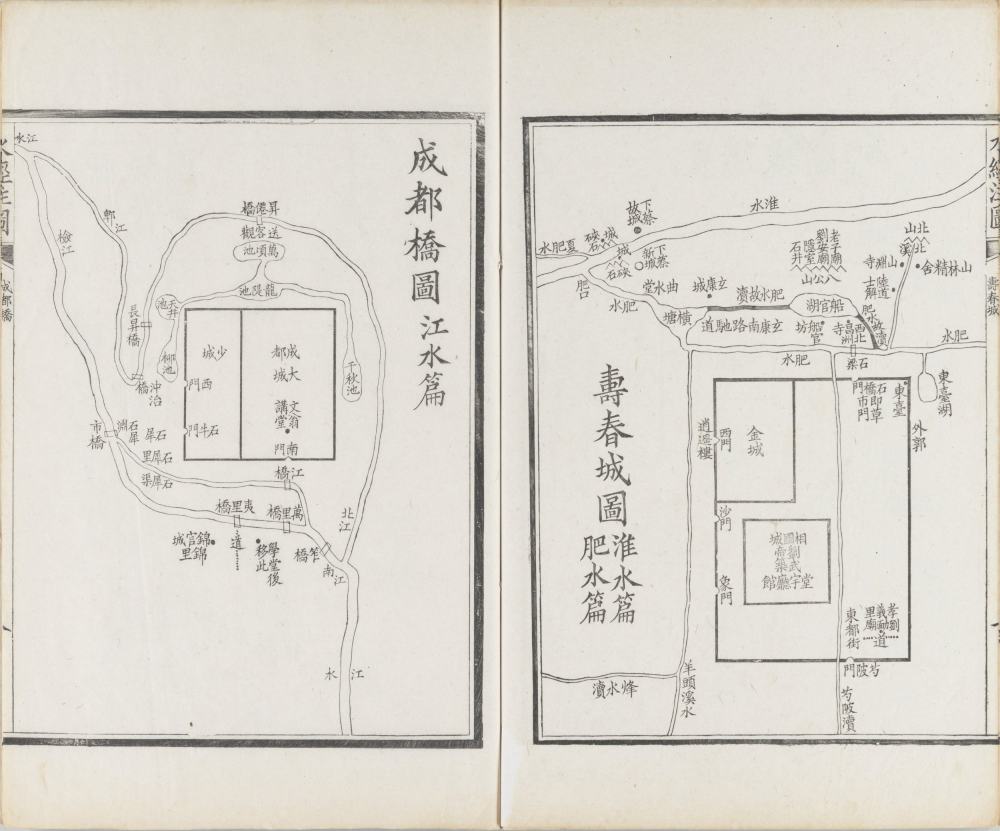 壽春城圖
淮水篇
肥水篇
淮水
下蔡
故城
硤石
城
下蔡
新城
硤石
城
夏肥水
肥口
肥水
曲水堂
玄康城
肥水故瀆
橫塘
玄康南路馳道
老子廟
劉安廟
隱室
石井
八公山
船官湖
船官坊
西昌寺
北洲
石梁
肥水故瀆
北山
北溪
山淵寺
陸道士解
山林精舍
肥水
肥水
東臺湖
外郭
東臺
石橋門
即草市門
逍遙樓
西門
金城
沙門
象門
相國城
劉武帝築
堂宇廳館
東都街
孝義里
劉勔廟
道
芍陂門
芍陂瀆
羊頭溪水
烽水瀆
水經注圖
壽春城
成都橋圖
江水篇
江水
郫江
檢江
昇僊橋
送客觀
萬頃池
龍隄池
天井池
長昇橋
柳池
沖治橋
千秋池
少城
成都
大城
西門
文翁
講堂
石牛門
南門
市橋
石犀淵
石犀
石犀里
石犀渠
江橋
萬里橋
夷里橋
道
錦官城
錦里
學堂後
移此
笮橋
北江
南江
江水
水經注圖
成都橋